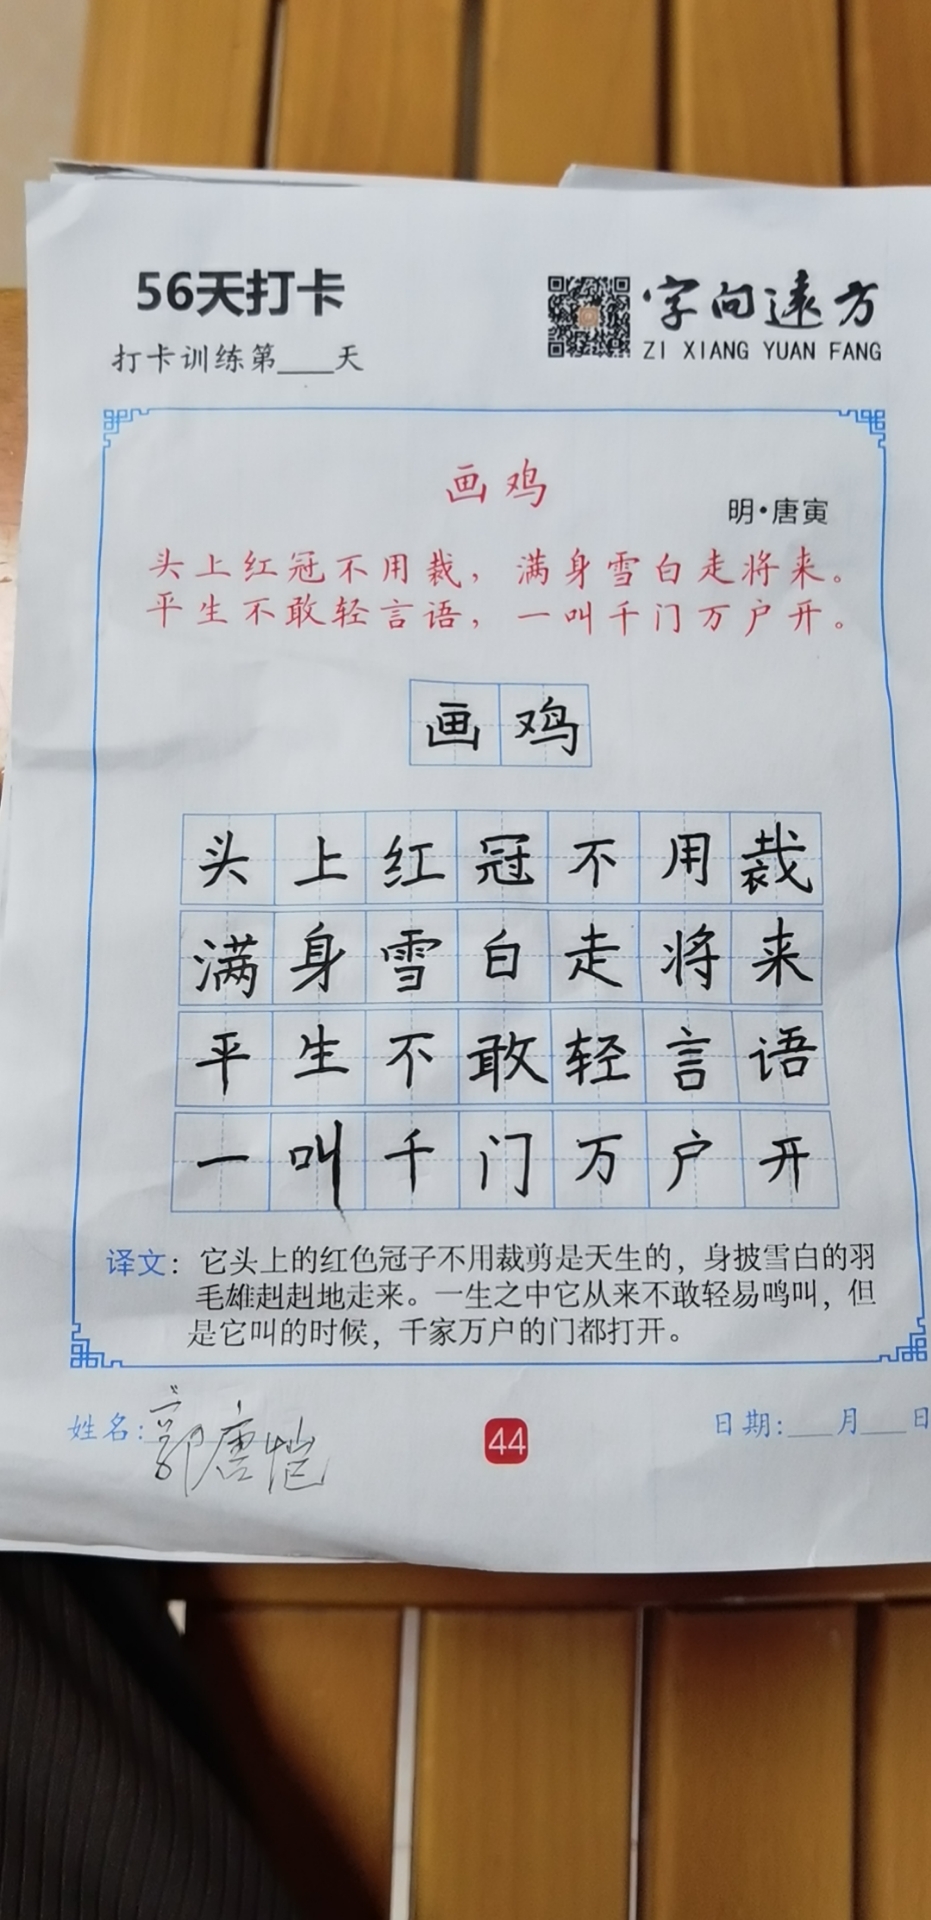 56天打卡
字向远方
ZI XIANG YUAN FANG
打卡训练第____天
画鸡
明·唐寅
头上红冠不用裁，满身雪白走将来。
平生不敢轻言语，一叫千门万户开。
画鸡
头上红冠不用裁
满身雪白走将来
平生不敢轻言语
一叫千门万户开
译文：它头上的红色冠子不用裁剪是天生的，身披雪白的羽
毛雄赳赳地走来。一生之中它从来不敢轻易鸣叫，但
是它叫的时候，千家万户的门都打开。
姓名：郭唐恺
44
日期:___月___日